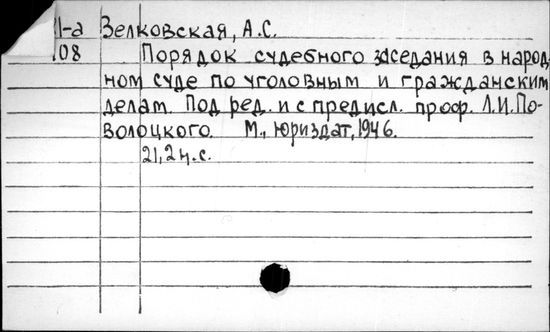 1-а Велковская, А.С.
108 Порядок судебного заседания в народ
ном суде по уголовным и гражданским
делам. Под ред. и с предисл. проф. Л.И. По-
волоцкого. М., Юриздат, 1946.
21, 2 н. с.